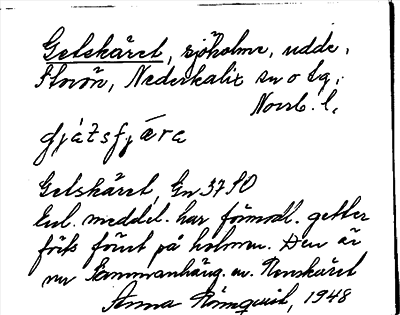 Getskäret, sjöholme, udde,
Storön, Nederkalix sn o tg,
Norrb. l.
gjátsfjæra
Getskäret, Gn 37 SO
Enl. meddel. har förmodl. getter
förts förut på holmen. Den är
nu sammanhäng. m. Renskäret
Anna Rönnquist, 1948